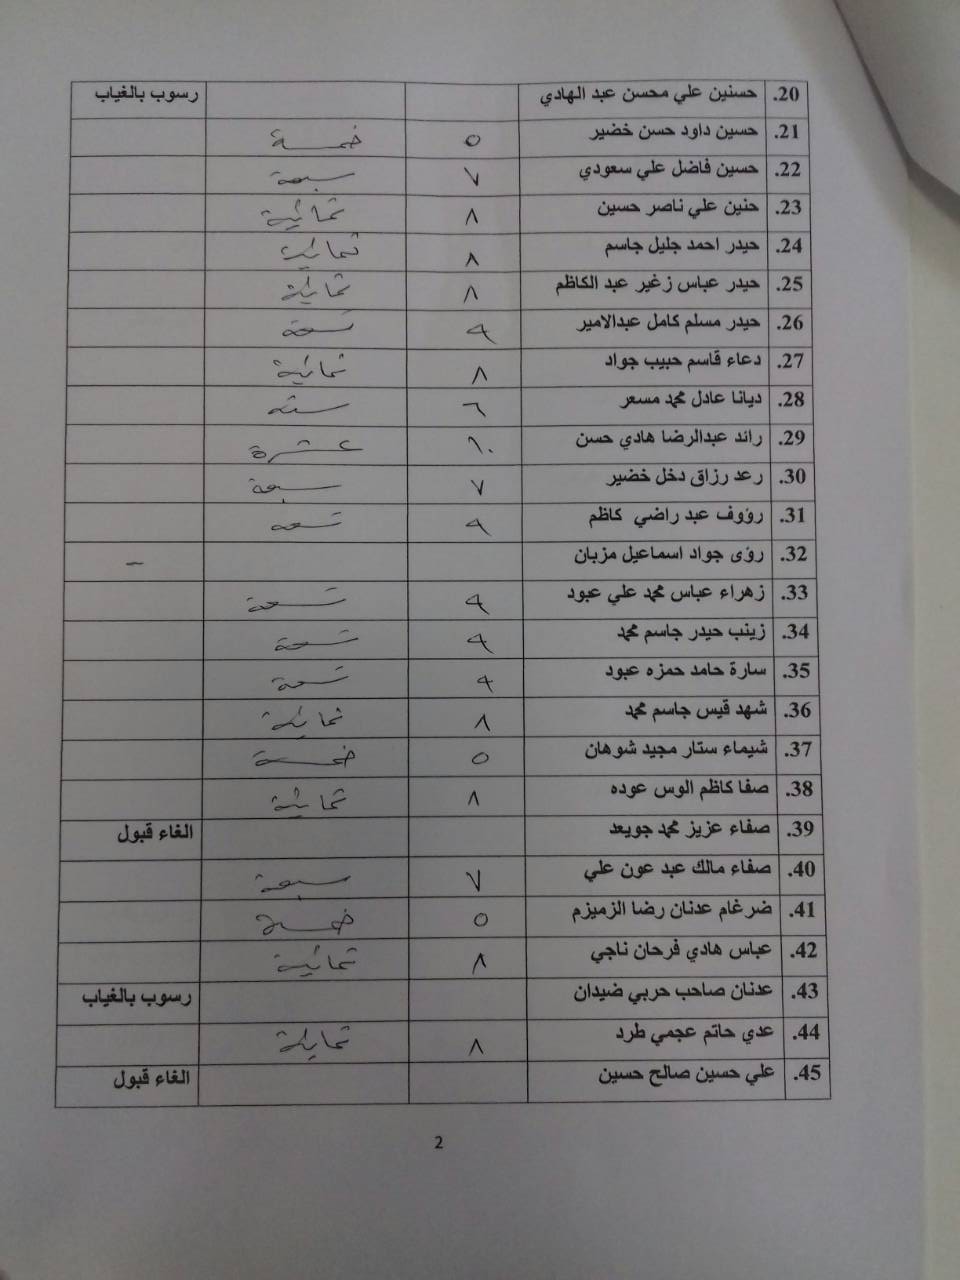 20. حسنين علي محسن عبد الهادي رسوب بالغياب
21. حسين داود حسن خضير ٥ خمسة
22. حسين فاضل علي سعودي ٧ سبعة
23. حنين علي ناصر حسين ٨ ثمانية
24. حيدر احمد جليل جاسم ٨ ثمانية
25. حيدر عباس زغير عبد الكاظم ٨ ثمانية
26. حيدر مسلم كامل عبدالامير ٩ تسعة
27. دعاء قاسم حبيب جواد ٨ ثمانية
28. ديانا عادل محمد مسعر ٦ ستة
29. رائد عبدالرضا هادي حسن ١٠ عشرة
30. رعد رزاق دخل خضير ٧ سبعة
31. رؤوف عبد راضي كاظم ٩ تسعة
32. رؤى جواد اسماعيل مزبان –
33. زهراء عباس محمد علي عبود ٩ تسعة
34. زينب حيدر جاسم محمد ٩ تسعة
35. سارة حامد حمزه عبود ٩ تسعة
36. شهد قيس جاسم محمد ٨ ثمانية
37. شيماء ستار مجيد شوهان ٥ خمسة
38. صفا كاظم الوس عوده ٨ ثمانية
39. صفاء عزيز محمد جويعد الغاء قبول
40. صفاء مالك عبد عون علي ٧ سبعة
41. ضرغام عدنان رضا الزميزم ٥ خمسة
42. عباس هادي فرحان ناجي ٨ ثمانية
43. عدنان صاحب حربي ضيدان رسوب بالغياب
44. عدي حاتم عجمي طرد ٨ ثمانية
45. علي حسين صالح حسين الغاء قبول
2